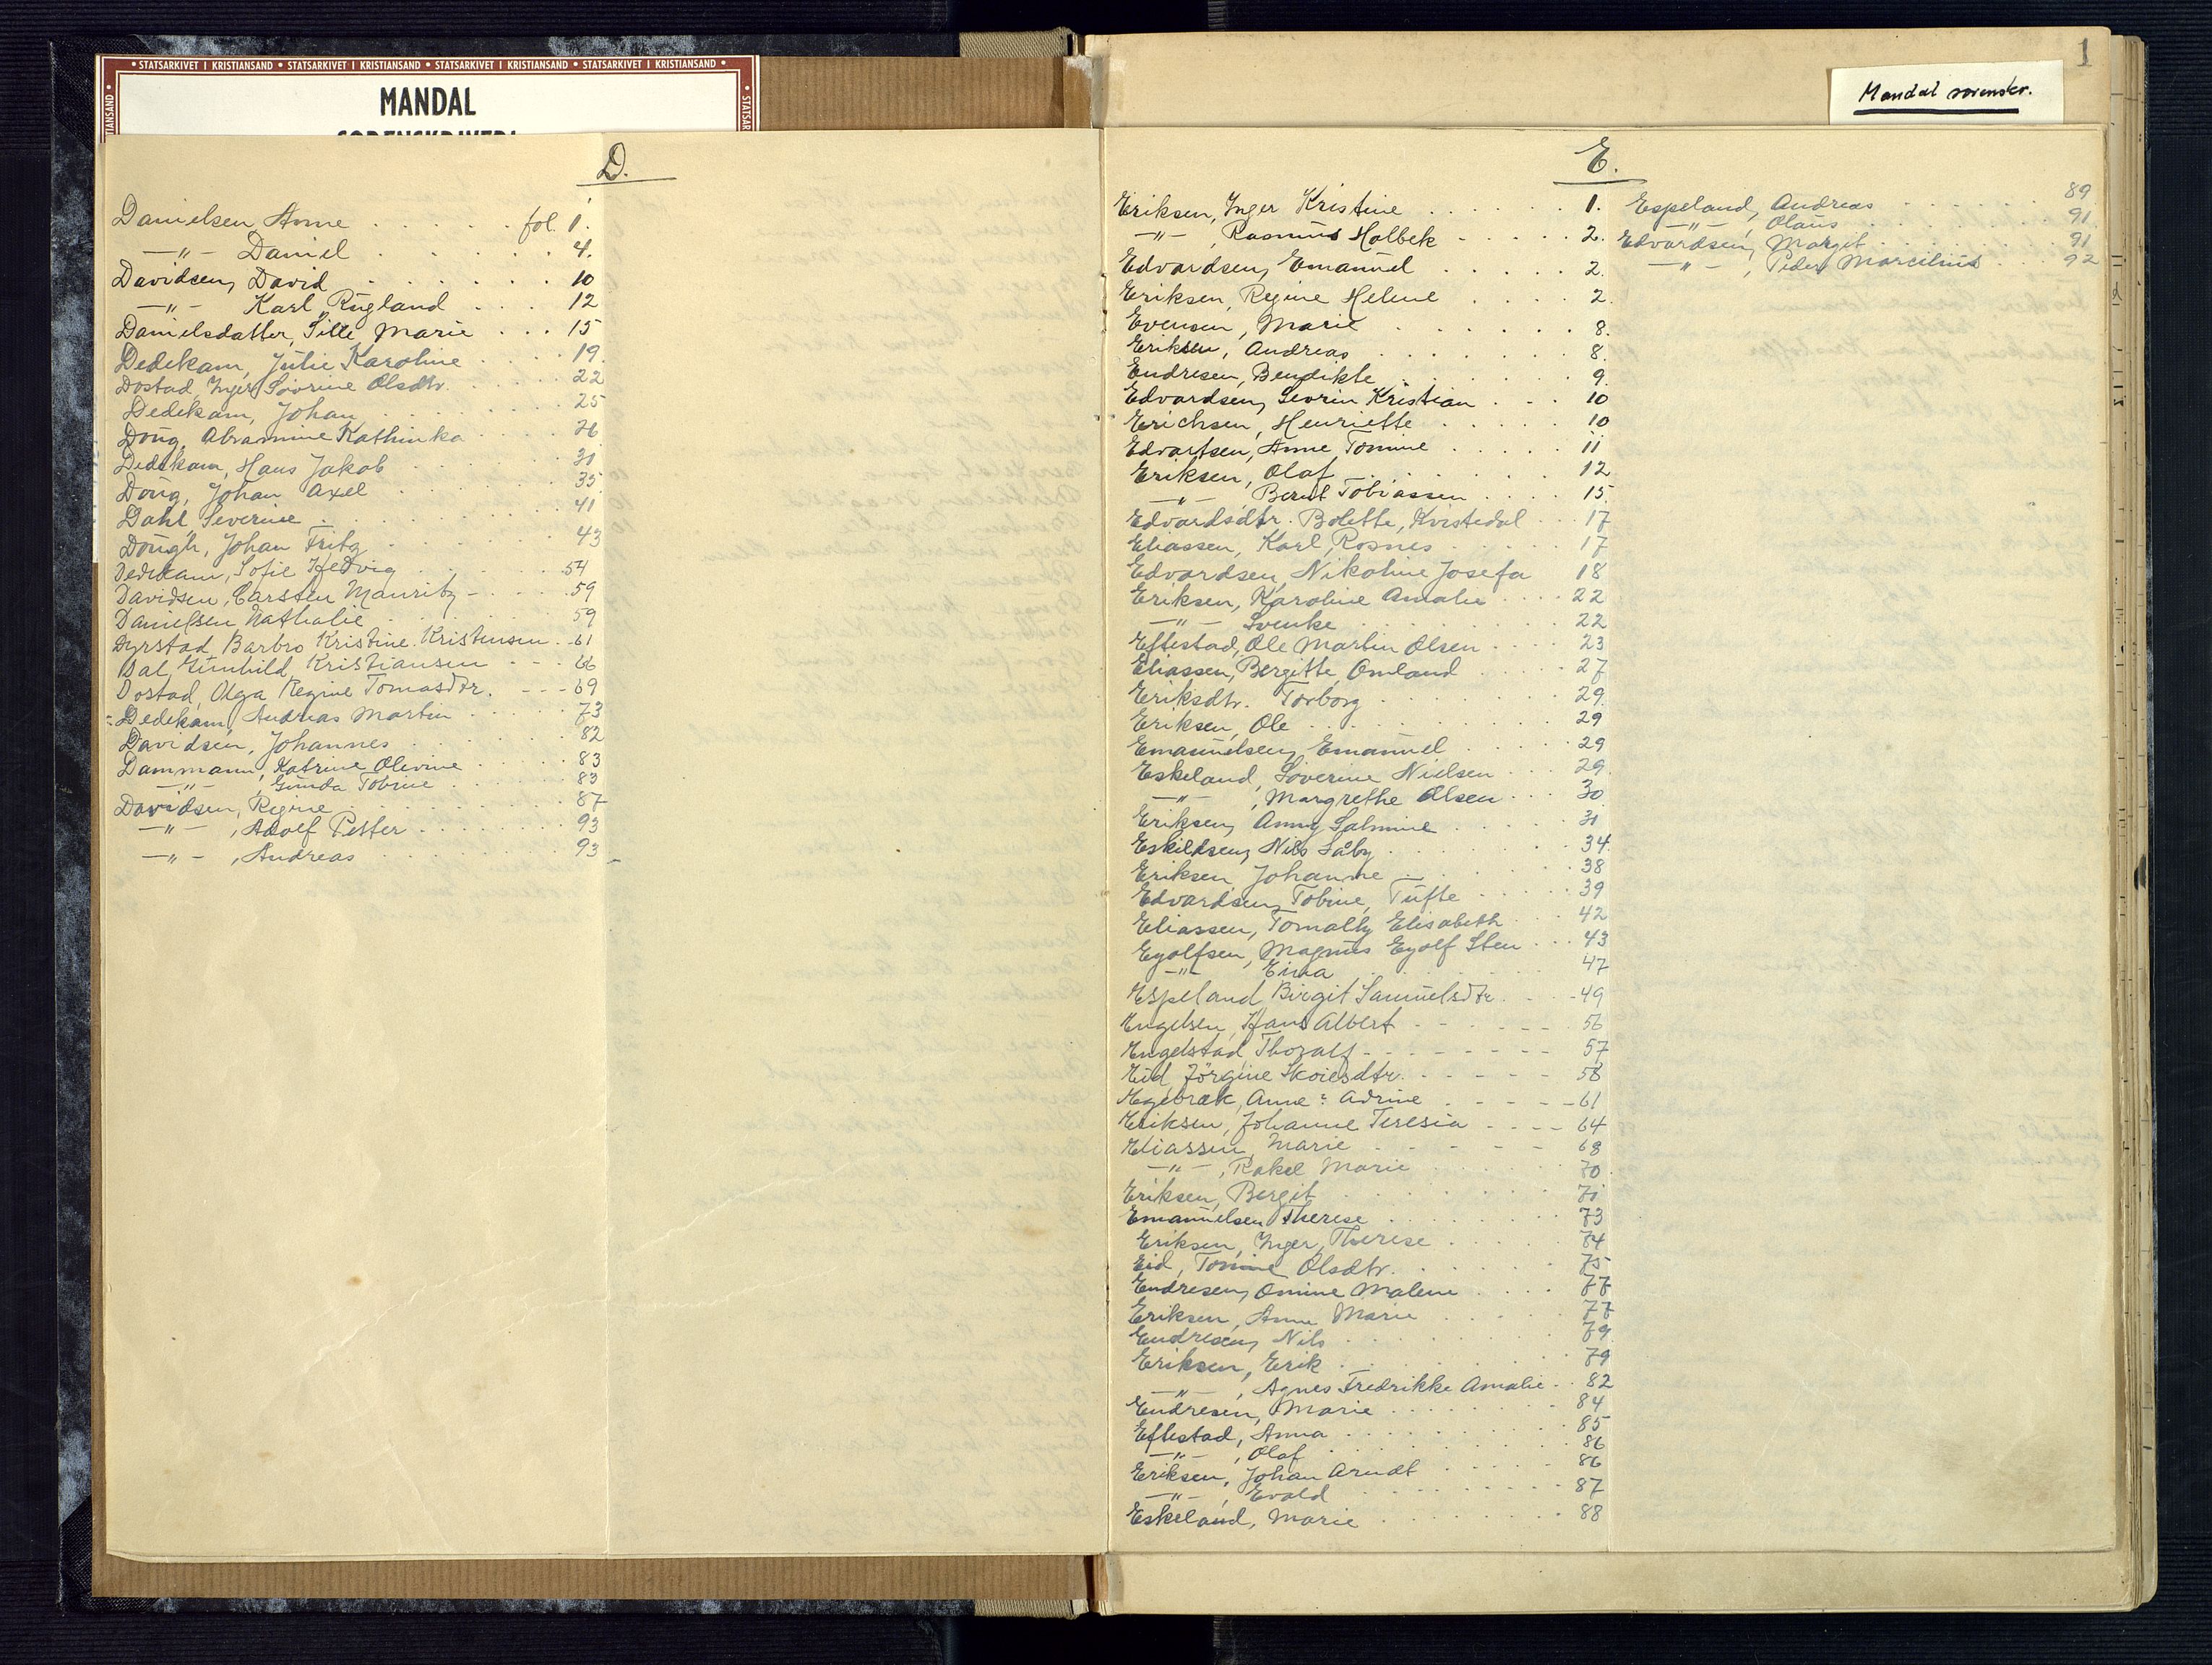 • STATSARKIVET I KRISTIANSAND • STATSARKIVET I KRISTIANSAND • STATSARKIVET I KRISTIANSAND • STATSARKIVET I KRISTIANSAND •
MANDAL
D.
Danielsen, Anne fol. 1.
—"— Daniel 4.
Davidsen, David 10
—"— Karl, Rugland 12
Danielsdatter, Sille Marie 15
Dedekam, Julie Karoline 19.
Dostad, Inger Sovrine Olsdtr. 22
Dedekam, Johan 25
Doug, Abramine Kathinka 26
Dedekam, Hans Jakob 30
Doug, Johan Axel 35
Dahl, Severine 41
Dough, Johan Fritz 43
Dedekam, Sofie Hedvig 54
Davidsen, Carsten Mauritz 59
Danielsen Nathalie 59
Dyrstad, Barbro Kristine Kristensen 61
Dal, Gunhild Kristiansen 66
Dostad, Olga Regine Tomasdtr. 69
Dedekam, Andreas Martin 73
Davidsen, Johannes 82
Dammann, Katrine Olevine 83
—"—, Gunda Tobine 83
Davidsen, Regine 87
—"—, Adolf Petter 93
—"—, Andreas 93
1
Mandal sorenskr.
E.
Eriksen, Inger Kristine 1.
—"—, Rasmus Holbek 2.
Edvardsen, Emanuel 2.
Eriksen, Regine Helene 2.
Evensen, Marie 8.
Eriksen, Andreas 8.
Endresen, Bendikte 9.
Edvardsen, Sevrin Kristian 10
Erichsen, Henriette 10
Edvartsen, Anne Tomine 11
Eriksen, Olaf 12
—"— Bernt Tobiassen 15.
Edvardsdtr. Bolette, Kvistedal 17
Eliassen, Karl, Rosnes 17
Edvardsen, Nikoline Josefa 18
Eriksen, Karoline Amalie 22
—"— Svenke 22
Eftestad, Ole Martin Olsen 23
Eliassen, Bergitte, Omland 27
Eriksdtr. Torborg 29.
Eriksen, Ole 29
Emanuelsen, Emanuel 29
Eskeland, Soverine Nielsen 29.
—"—, Margrethe Olsen 30
Eriksen, Anny Salmine 31
Eskildsen, Nils Såby 34.
Eriksen, Johanne 38
Edvardsen, Tobine, Tufte 39
Eliassen, Tomally Elisabeth 42
Eyolfsen, Magnus Eyolf Sten 43
—"— Eina 47
Espeland Birgit Samuelsdtr. 49
Engelsen, Hans Albert 56
Engelstad, Thoralf 57
Eid, Jörgine Skoiesdtr. 58
Egebræk, Anne Adrine 61
Eriksen, Johanne Teresia 64
Eliassen, Marie 68
—"—, Rakel Marie 70
Eriksen, Bergit 71
Emanuelsen Therese 73
Eriksen, Inger Therese 74
Eid, Tomine Olsdtr. 75
Endresen, Omine Malene 77
Eriksen, Anne Marie 77
Endresen, Nils 79.
Eriksen, Erik 79
—"—, Agnes Fredrikke Amalie 82
Endresen, Marie 84
Eftestad, Anna 85
—"—, Olaf 86
Eriksen, Johan Arndt 86
—"—, Evald 87
Eskeland, Marie 88
Espeland, Andreas 89
—"—, Olaus 91
Edvardsen, Margit 91
—"—, Peder Marcelius 92